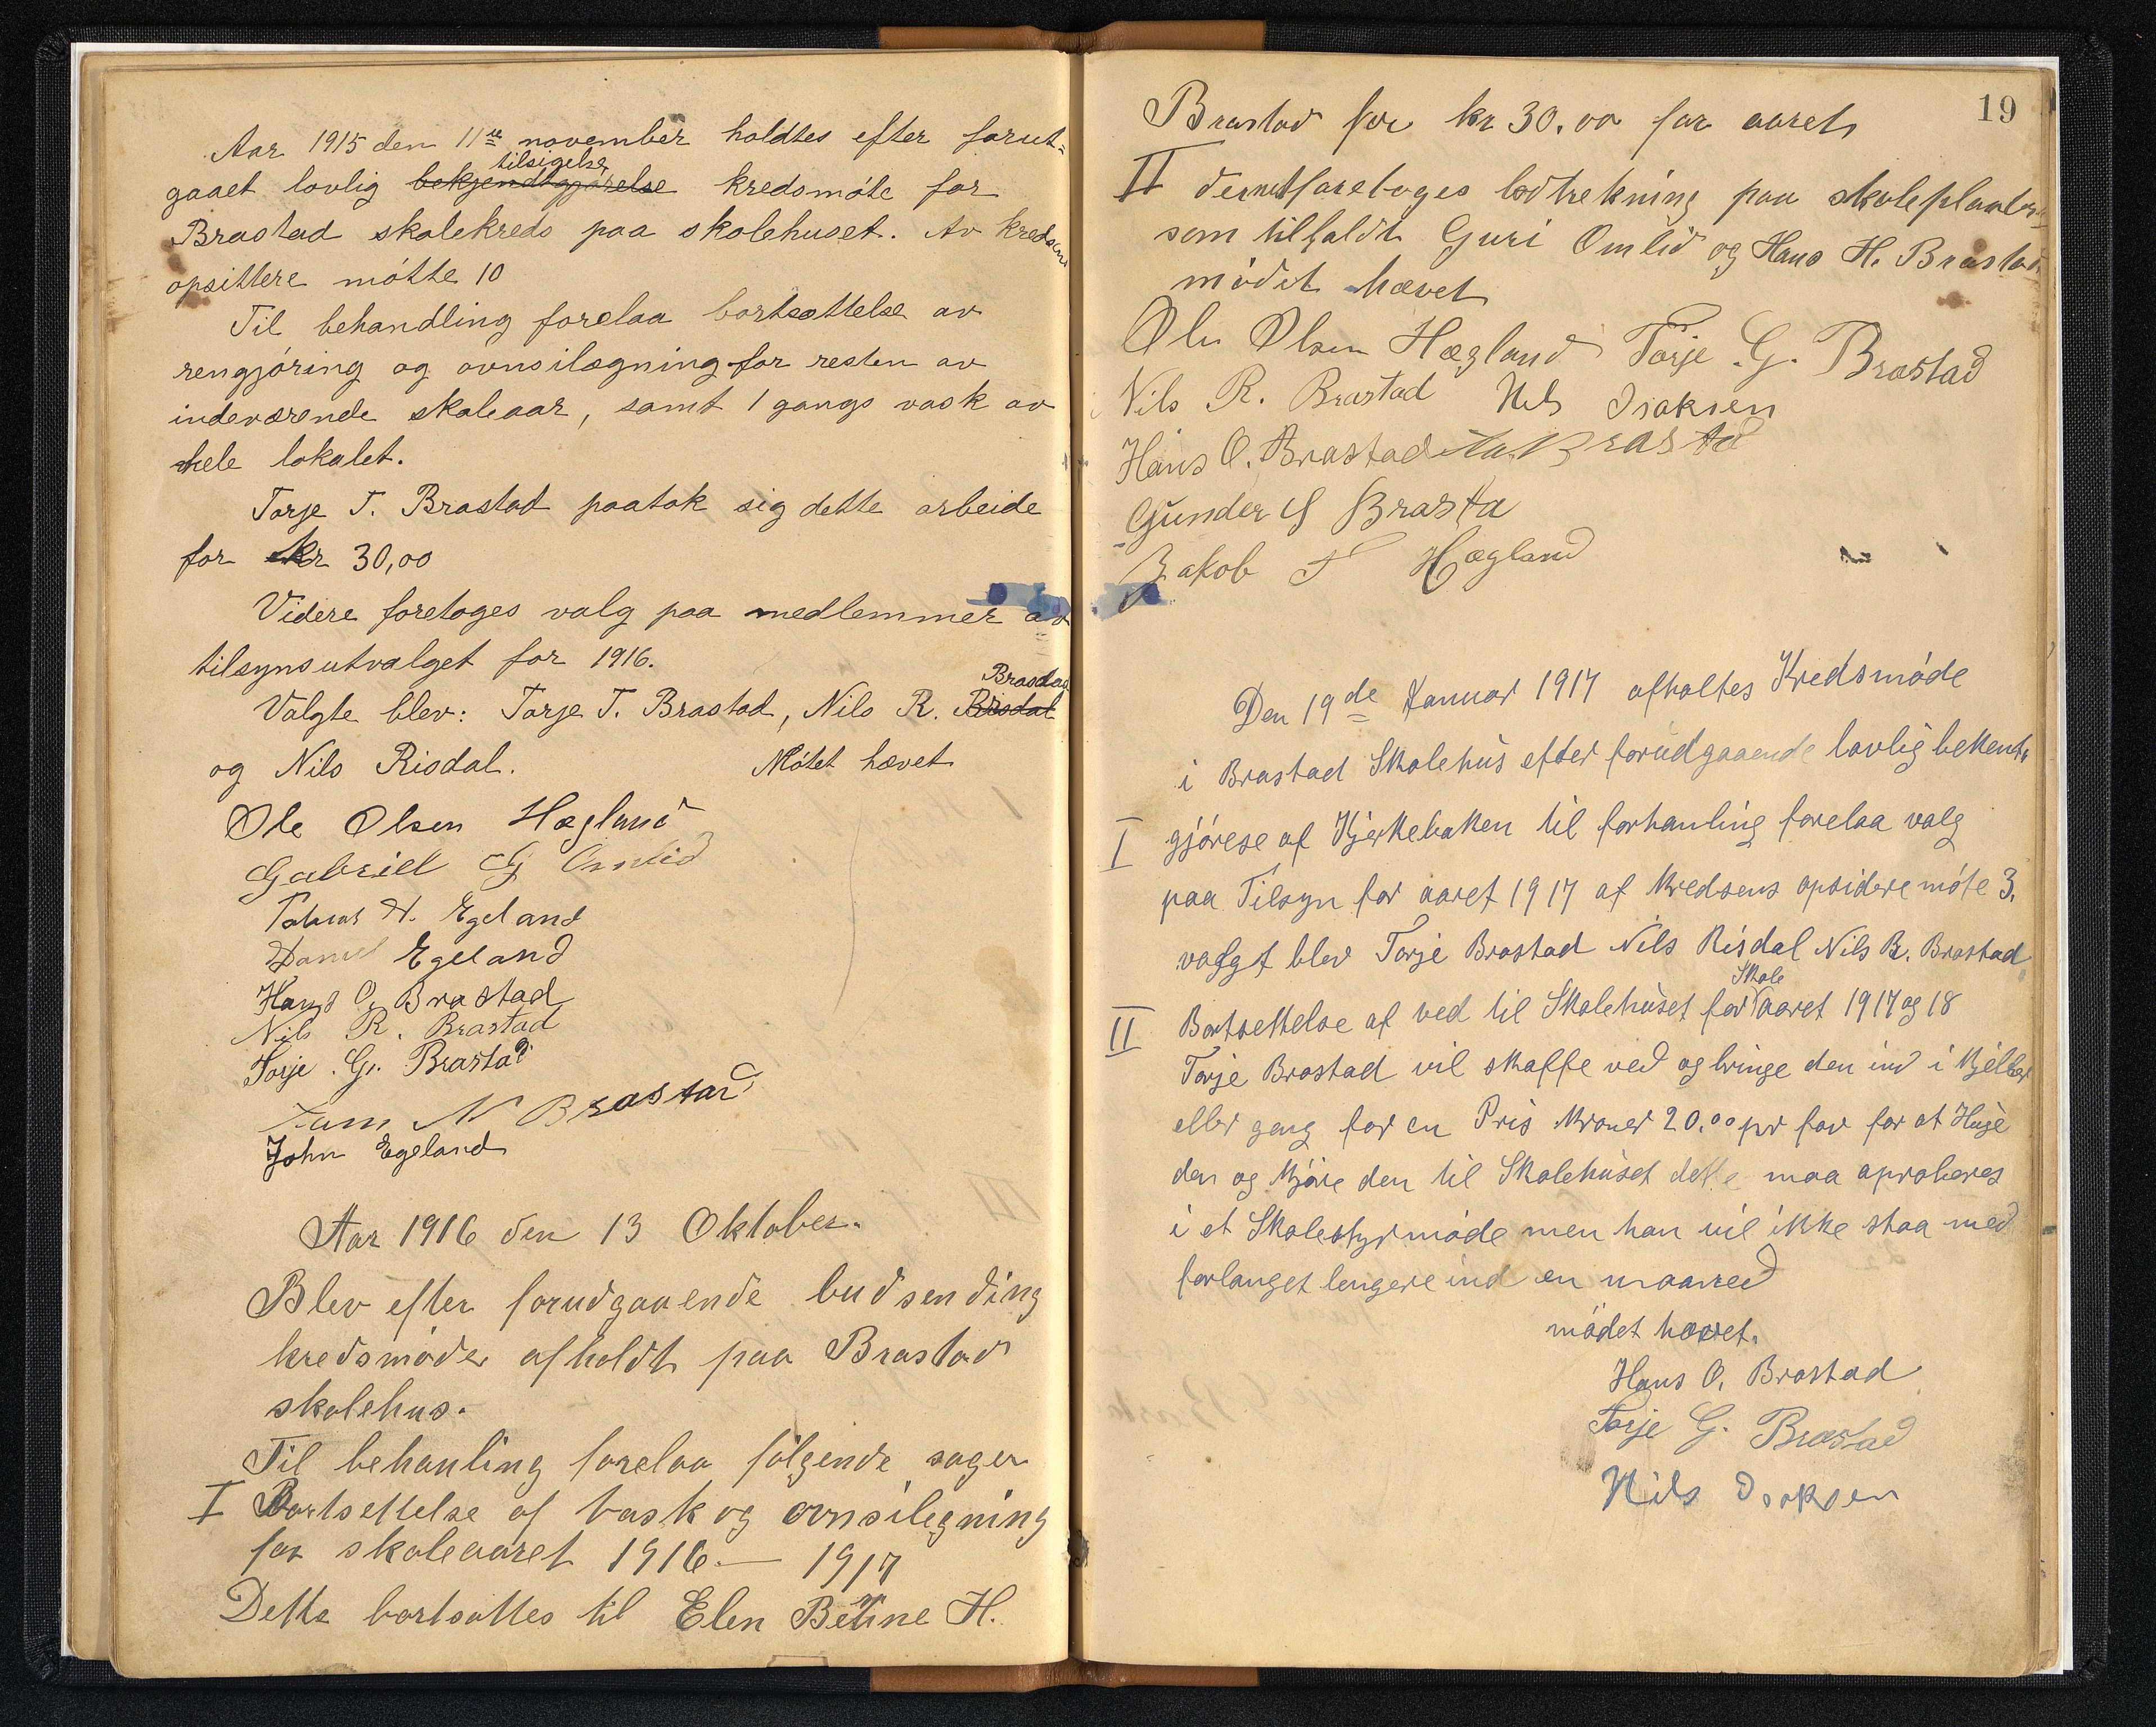 Aar 1915 den 11te november holdtes efter forut-
tilsigelse
gaaet lovlig bekjendtgjørelse kredsmøte for
Brastad skolekreds paa skolehuset. Av kredsens
opsittere møtte 10
Til behandling forelaa bortsættelse av
rengjøring og ovnsilægning for resten av
indeværende skoleaar, samt 1 gangs vask av
hele lokalet.
Torje T. Brastad paatok sig dette arbeide
for kr 30,00
Videre foretoges valg paa medlemmer av
tilsynsutvalget for 1916.
Brasdad
Valgte blev: Torje T. Brastad, Nils R. Risdal
og Nils Risdal. Møtet hævet
Ole Olsen Hægland
Gabriell G Omlid
Tobias A. Egeland
Daniel Egeland
Hans O. Brastad
Nils R. Brastad
Torje G. Brastad
Tam N Brastad
John Egeland
Aar 1916 den 13 Oktober.
Blev efter forudgaaende budsending
kredsmøde afholdt paa Brastad
skolehus.
Til behanling forelaa følgende sager
I Bortsettelse af vask og ovnsilegning
for skoleaaret 1916 — 1917
Dette bortsattes til Elen Betine H.
19
Brastad for kr 30.00 for aaret
II dernæst foretoges lodtrekning paa skoleplader
som tilfaldt Guri Omlid og Hans H. Brastad
mødet hævet
Ole Olsen Hægland Torje G. Brastad
Nils R. Brastad Nils Isaksen
Hans O. Brastad Brastad
Gunder G Brasta
Jakob T Hægland
Den 19de Januar 1917 afholtes Kredsmøde
i Brastad Skolehus efter forudgaaende lovlig bekent-
I gjørese af Kjerkebaken til forhanling forelaa valg
paa Tilsyn for aaret 1917 af Kredsens opsidere møte 3.
valgt blev Torje Brastad Nils Risdal Nils R. Brastad
Skole
II Bortsettelse af ved til Skolehuset for aaret 1917 og 18
Torje Brastad vil skaffe ved og bringe den ind i Kjelber
eller gang for en Pris Kroner 20.00 pr fav for at Huge
den og Kjøre den til Skolehuset dette maa aproberes
i et Skolestyrmøde men han vil ikke staa med
forlanget lengere ind en maaned
mødet hævet.
Hans O. Brastad
Torje G. Brastad
Nils Isaksen